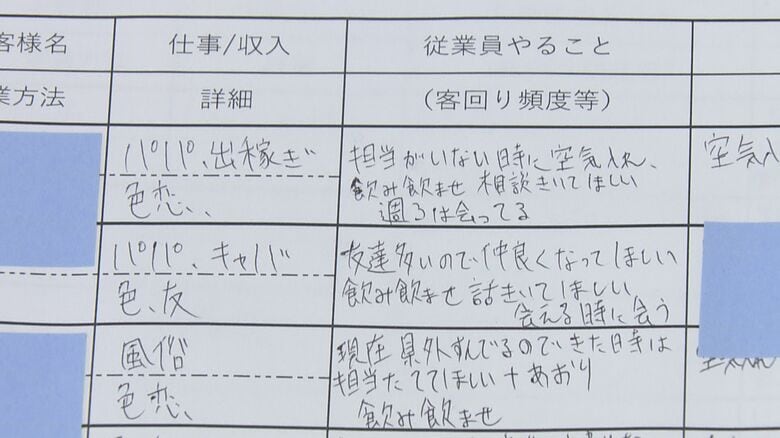 客様名 仕事/収入 従業員やること
業方法 詳細 (客回り頻度等)
パパパパ、出稼ぎ
色恋、
担当がいない時に空気入れ、
飲み飲ませ 相談きいてほしい
週3は会ってる
空気入
パパパパ、キャバ
色、友
友達多いので仲良くなってほしい
飲み飲ませ 話きいてほしい
会える時に会う
風俗
色恋、
現在県外すんでるのできた時は
担当たててほしい+あおり
飲み飲ませ